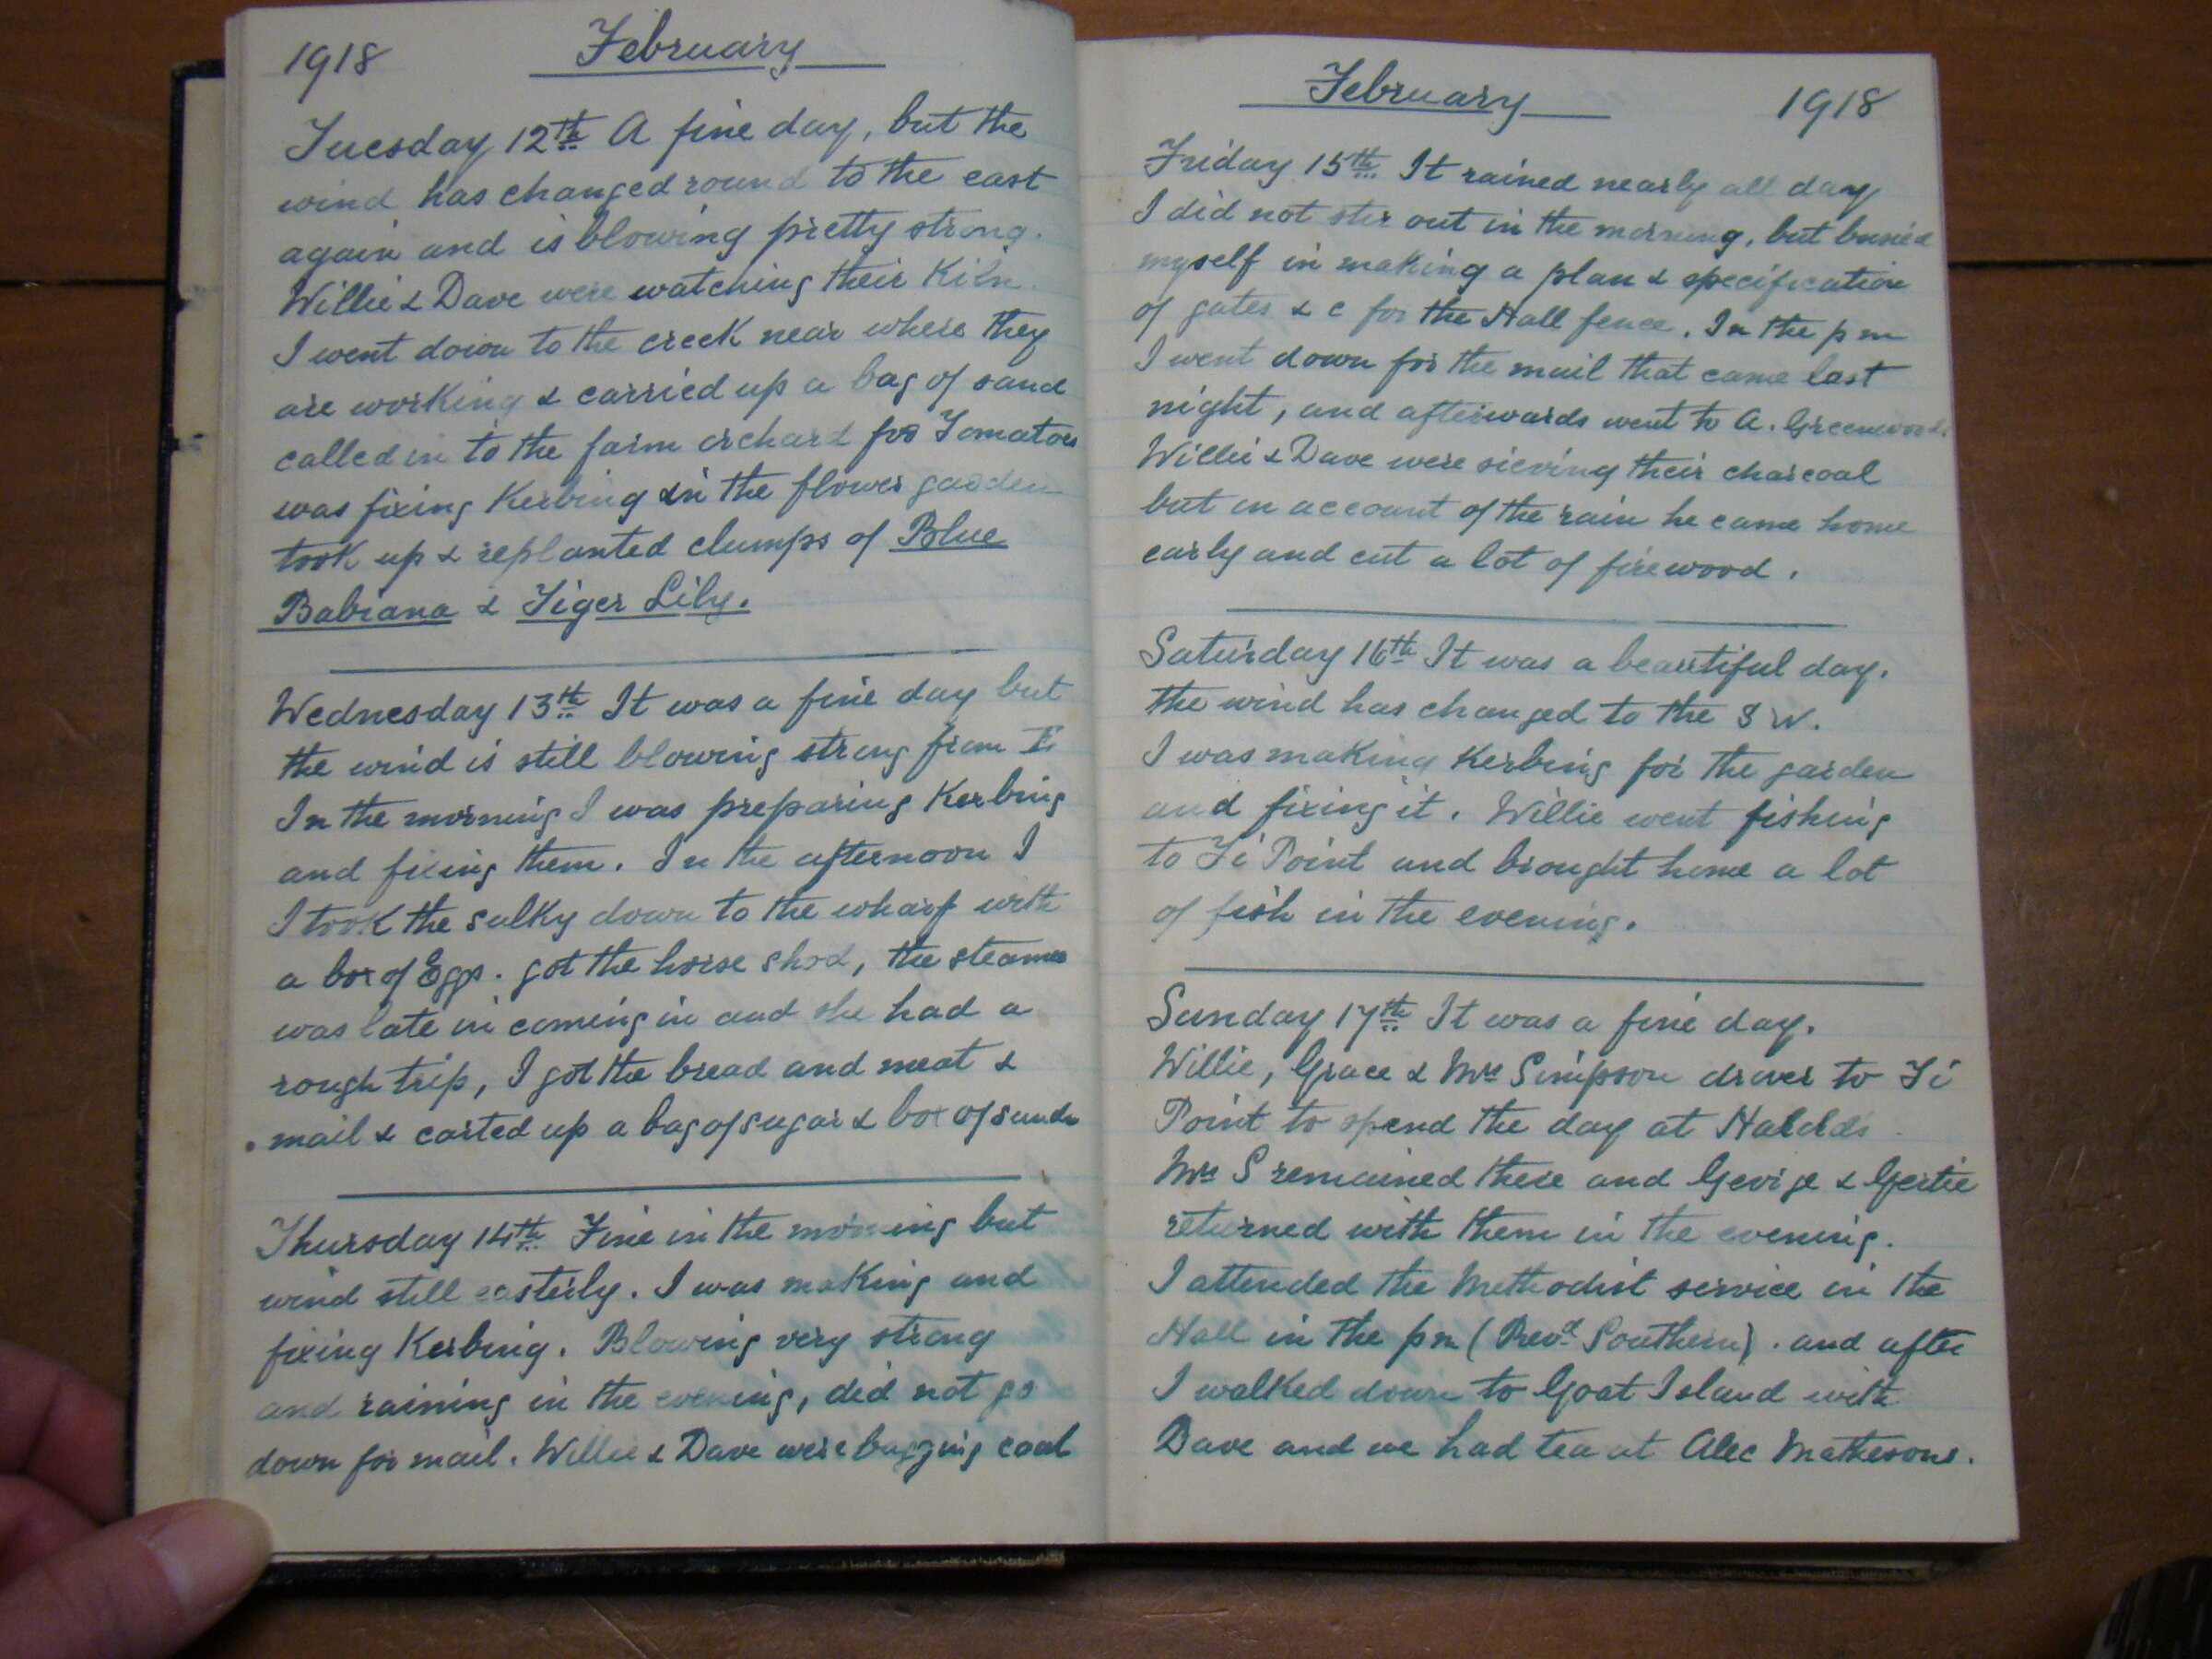 1918 February
Tuesday 12th A fine day, but the
wind has changed round to the east
again and is blowing pretty strong.
Willie & Dave were watching their Kiln.
I went down to the creek near where they
are working & carried up a bag of sand
called in to the farm orchard for Tomatoes
was fixing Kerbing in the flower garden
took up & replanted clumps of Blue
Babiana & Tiger Lily.
Wednesday 13th It was a fine day but
the wind is still blowing strong from E
In the morning I was preparing Kerbing
and fixing them. In the afternoon I
I took the sulky down to the wharf with
a box of Eggs. got the horse shod, the steamer
was late in coming in and she had a
rough trip, I got the bread and meat &
mail & carted up a bag of sugar & box of
Thursday 14th Fine in the morning but
wind still easterly. I was making and
fixing Kerbing. Blowing very strong
and raining in the evening, did not go
down for mail. Willie & Dave were bagging coal
February 1918
Friday 15th It rained nearly all day
I did not stir out in the morning, but busied
myself in making a plan & specification
of gates & c for the Hall fence. In the pm
I went down for the mail that came last
night, and afterwards went to A. Greenwoods.
Willie & Dave were sieving their charcoal
but on account of the rain he came home
early and cut a lot of firewood.
Saturday 16th It was a beautiful day.
the wind has changed to the S W.
I was making Kerbing for the garden
and fixing it. Willie went fishing
to Ti Point and brought home a lot
of fish in the evening.
Sunday 17th It was a fine day.
Willie, Grace & Mrs Simpson drove to Ti
Point to spend the day at Harolds.
Mrs S remained there and George & Gertie
returned with them in the evening.
I attended the Methodist service in the
Hall in the pm (Revd Southern). and after
I walked down to Goat Island with
Dave and we had tea at Alec Mathesons.